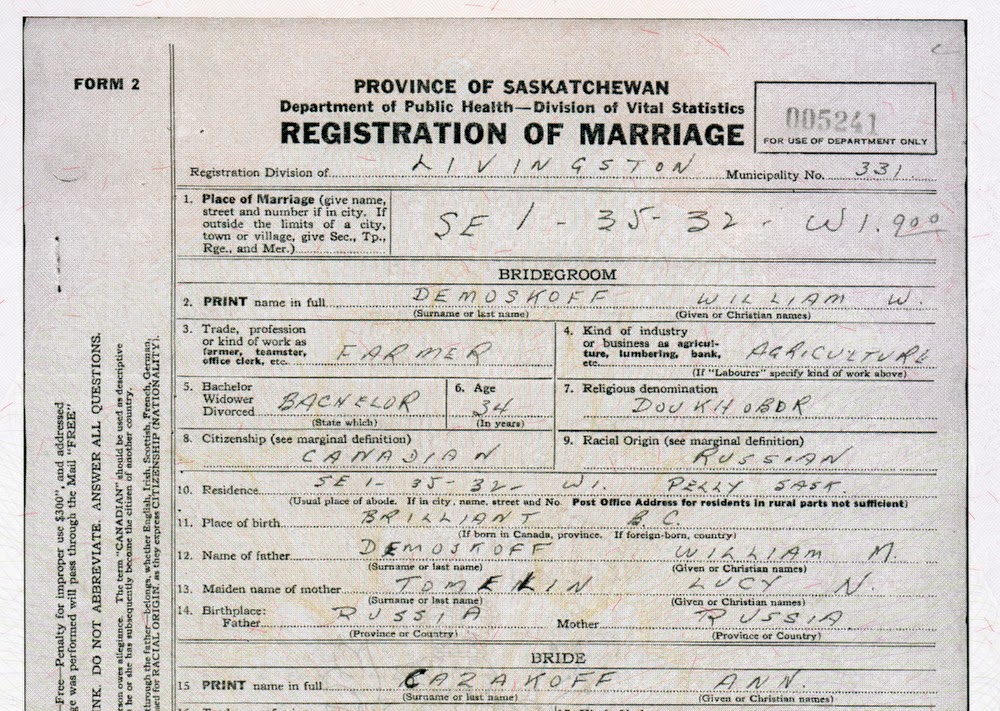 FORM 2
PROVINCE OF SASKATCHEWAN
Department of Public Health—Division of Vital Statistics
REGISTRATION OF MARRIAGE
005241
FOR USE OF DEPARTMENT ONLY
Registration Division of LIVINGSTON Municipality No. 331.
1. Place of Marriage (give name,
street and number if in city. If
outside the limits of a city,
town or village, give Sec., Tp.,
Rge., and Mer.)
SE 1 - 35 - 32 - W1.
BRIDEGROOM
2. PRINT name in full DEMOSKOFF WILLIAM W.
(Surname or last name) (Given or Christian names)
3. Trade, profession
or kind of work as
farmer, teamster,
office clerk, etc. FARMER
4. Kind of industry
or business as agricul-
ture, lumbering, bank,
etc. AGRICULTURE
(If "Labourer" specify kind of work above)
5. Bachelor
Widower
Divorced BACHELOR
(State which)
6. Age
34
(In years)
7. Religious denomination
DOUKHOBOR
8. Citizenship (see marginal definition)
CANADIAN
9. Racial Origin (see marginal definition)
RUSSIAN
10. Residence SE 1 - 35 - 32 - W1. PELLY SASK.
(Usual place of abode. If in city, name, street and No. Post Office Address for residents in rural parts not sufficient)
11. Place of birth BRILLIANT B.C.
(If born in Canada, province. If foreign-born, country)
12. Name of father DEMOSKOFF WILLIAM M.
(Surname or last name) (Given or Christian names)
13. Maiden name of mother TOMILIN LUCY N.
(Surname or last name) (Given or Christian names)
14. Birthplace:
Father RUSSIA Mother RUSSIA
(Province or Country) (Province or Country)
BRIDE
15 PRINT name in full CAZAKOFF ANN.
(Surname or last name) (Given or Christian names)
Free—Penalty for improper use $300", and addressed
ge was performed will pass through the Mail "FREE"
INK. DO NOT ABBREVIATE. ANSWER ALL QUESTIONS.
owes allegiance. The term "CANADIAN" should be used as descriptive
he or she has subsequently become the citizen of another country.
through the father—belongs, whether English, Irish, Scottish, French, German,
used for RACIAL ORIGIN, as they express CITIZENSHIP (NATIONALITY).